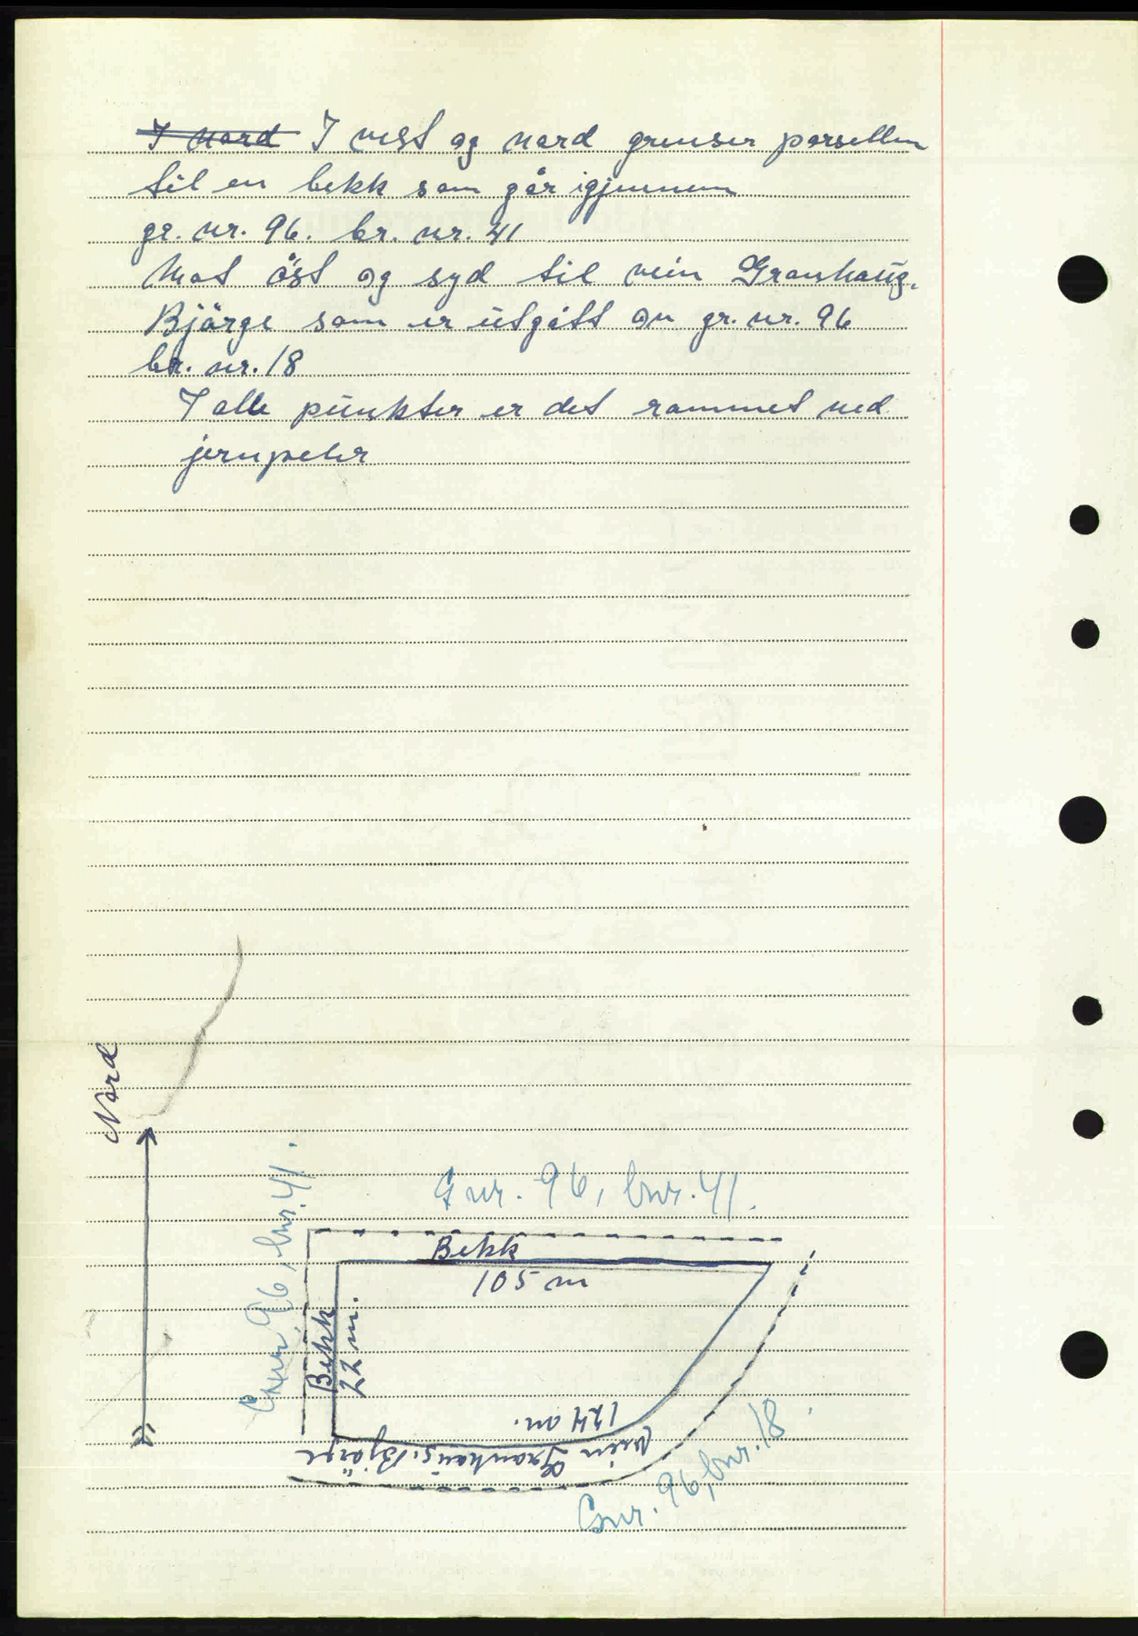 ~~I nord~~ I vest og nord grenser parsellen
til en bekk som går igjennem
gr. nr. 96. br. nr. 41
Mot öst og syd til vein Granhaug.
Bjärge som er utgått av gr. nr. 96
br. nr. 18
I alle punkter er det rammet ned
jernpelır
Nord
Gnr. 96, bnr. 41.
Gnr. 96, bnr. 41.
Bekk
105 m
Bekk
22 m.
124 m.
vein Granhaug. Bjärge
Gnr. 96, bnr. 18.